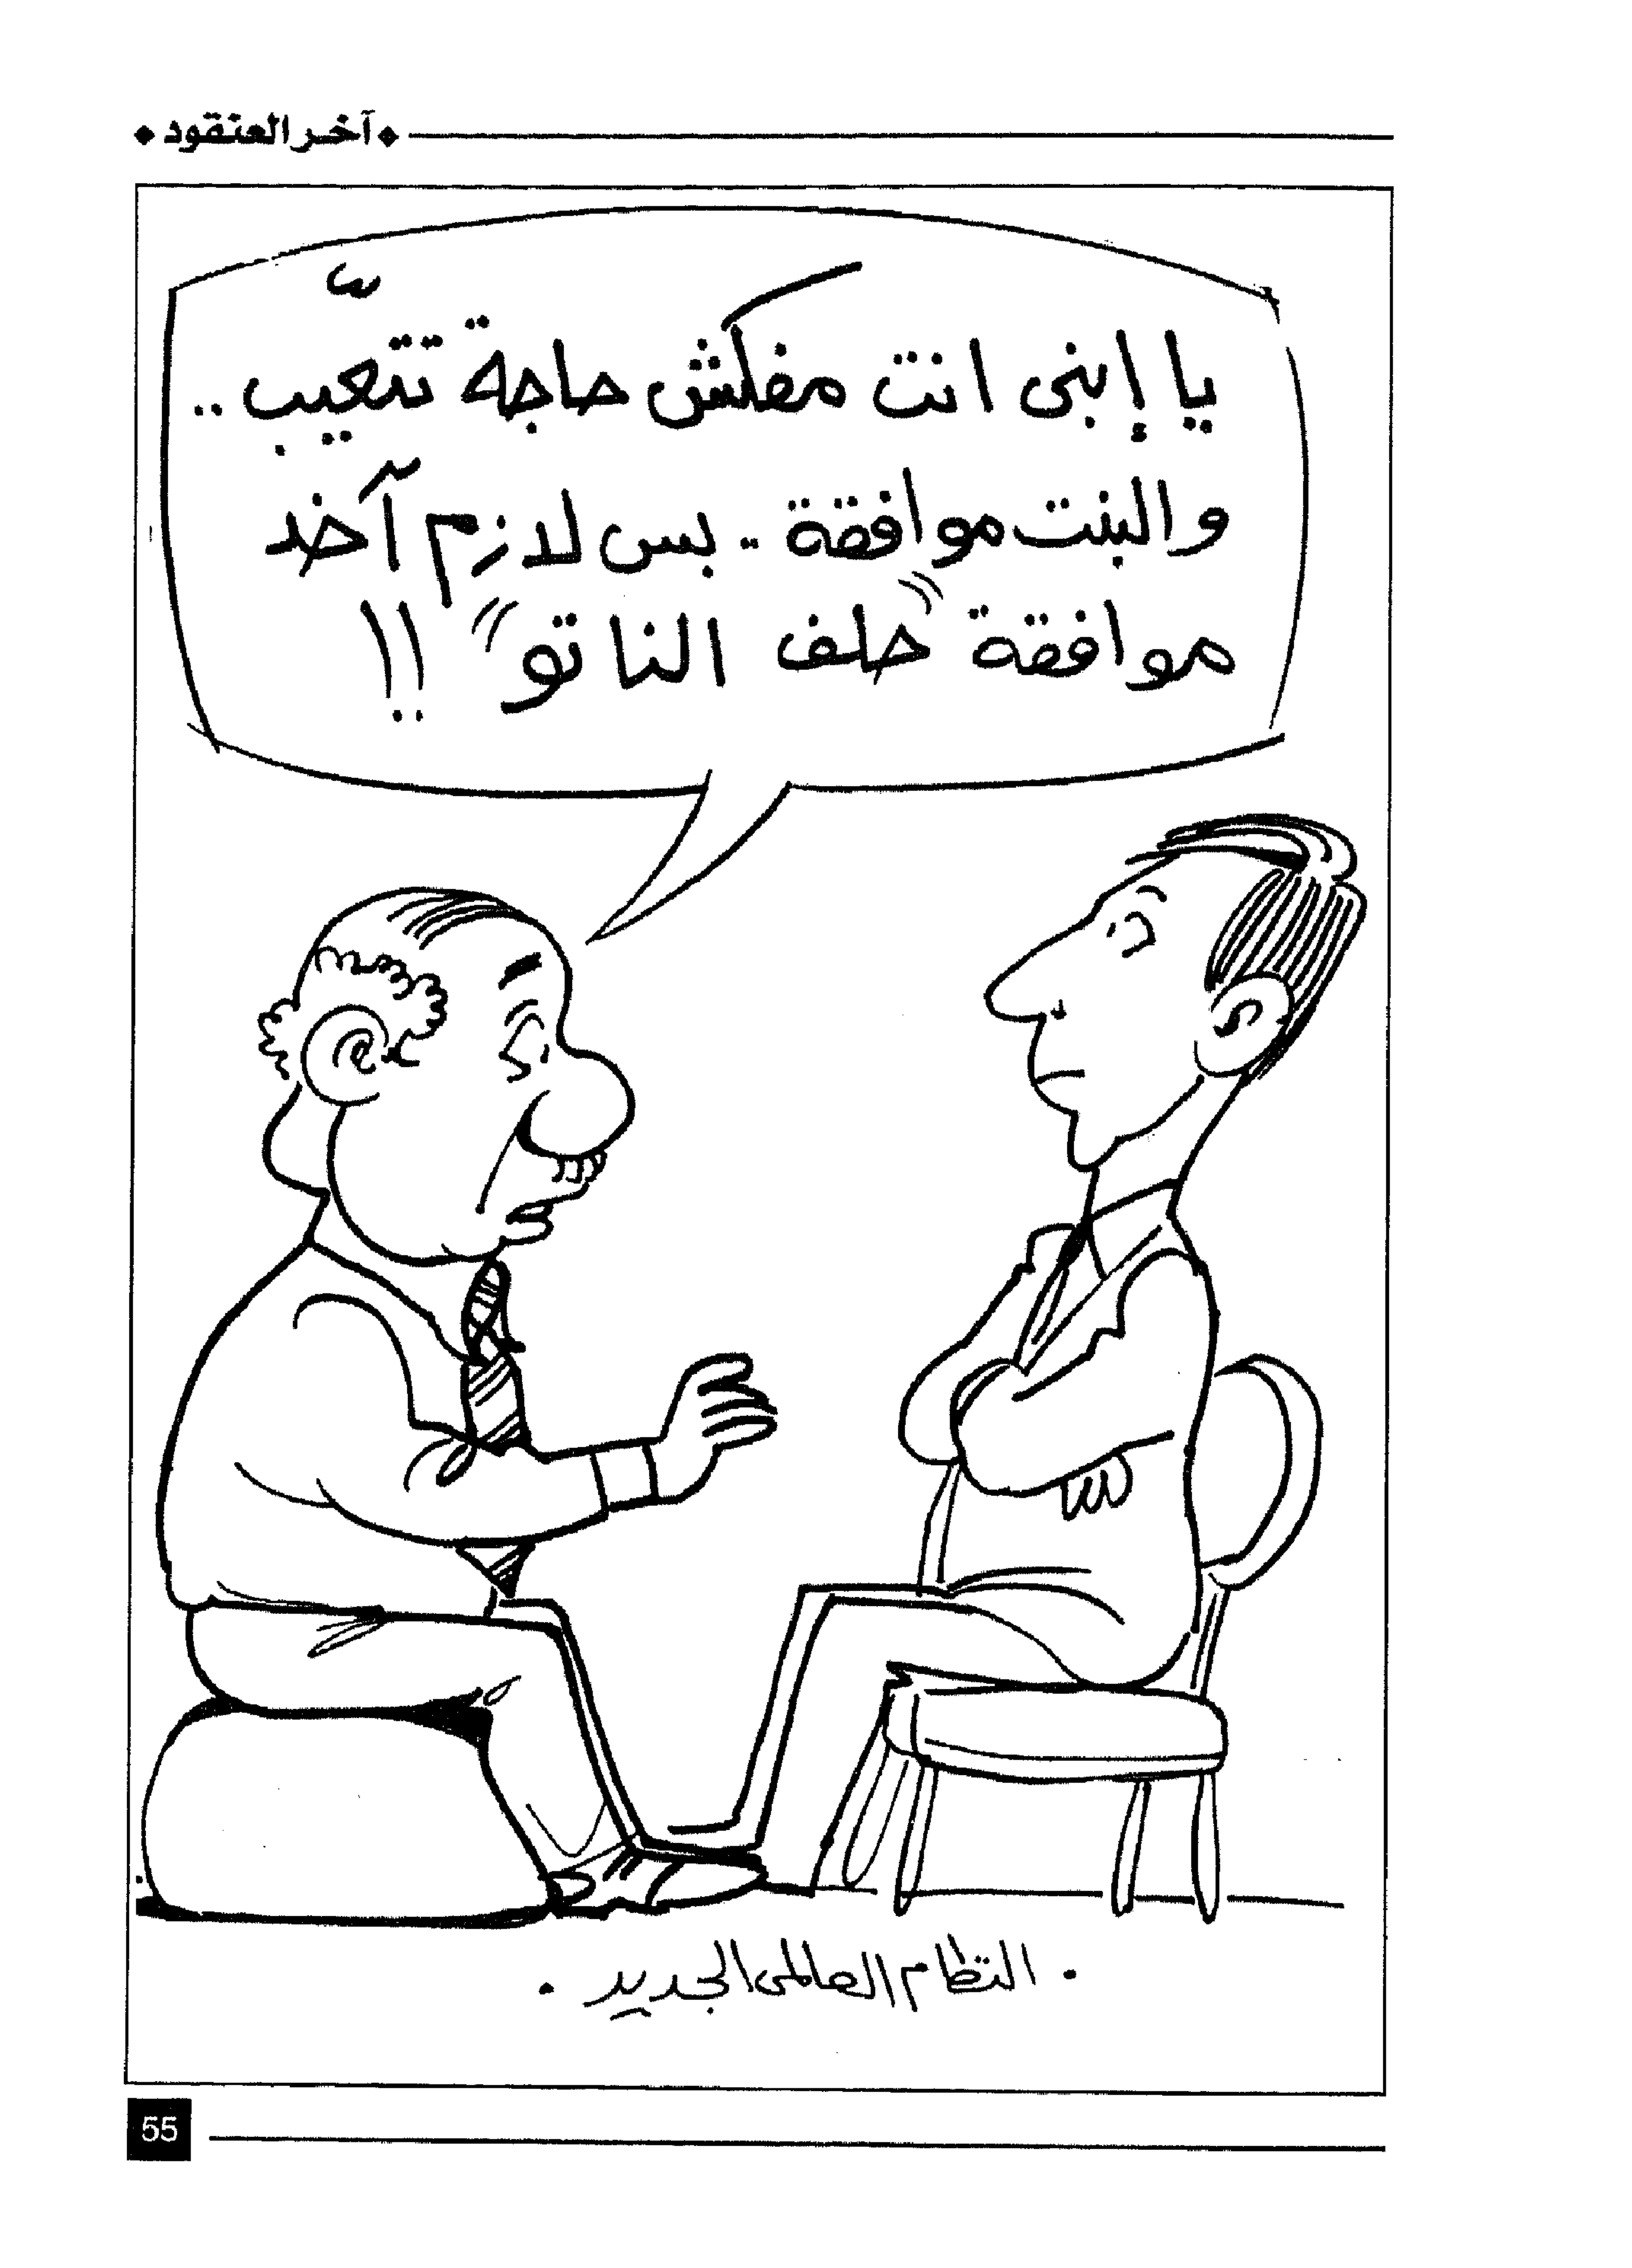 آخر العنقود
يا إبنى انت مفكش حاجة تتعيّب ..
والبنت موافقة .. بس لازم آخد
موافقة "حلف الناتو" !!
. النظام العالمى الجديد .
55